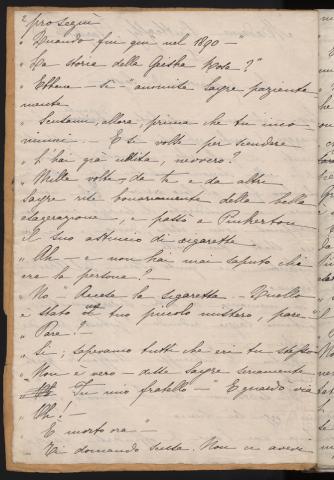 2
proseguì
" Quando fui qui nel 1890 — "
" La storia della Geisha Rosa? "
" Ebbene — sì — " annuì Sayre paziente
mente
" Scusami, allora, prima che tu inco
minci — E si volse per scendere
" L'hai già udita, ovvero?
" Mille volte, da te e da altri
Sayre rise bonariamente della bella
esagerazione, e passò a Pinkerton
il suo astuccio di sigarette
" Ah — e non hai mai saputo chi
era la persona? —
" No " Accese la sigaretta — Quello
è stato il tuo piccolo mistero, pare "
" Pare? —
" Sì; sapevamo tutti che eri tu stesso
" Non è vero — disse Sayre seriamente
" Fu mio fratello — " E guardò via
" Oh! —
" È morto ora "
" Ti domando scusa. Non ce aveva